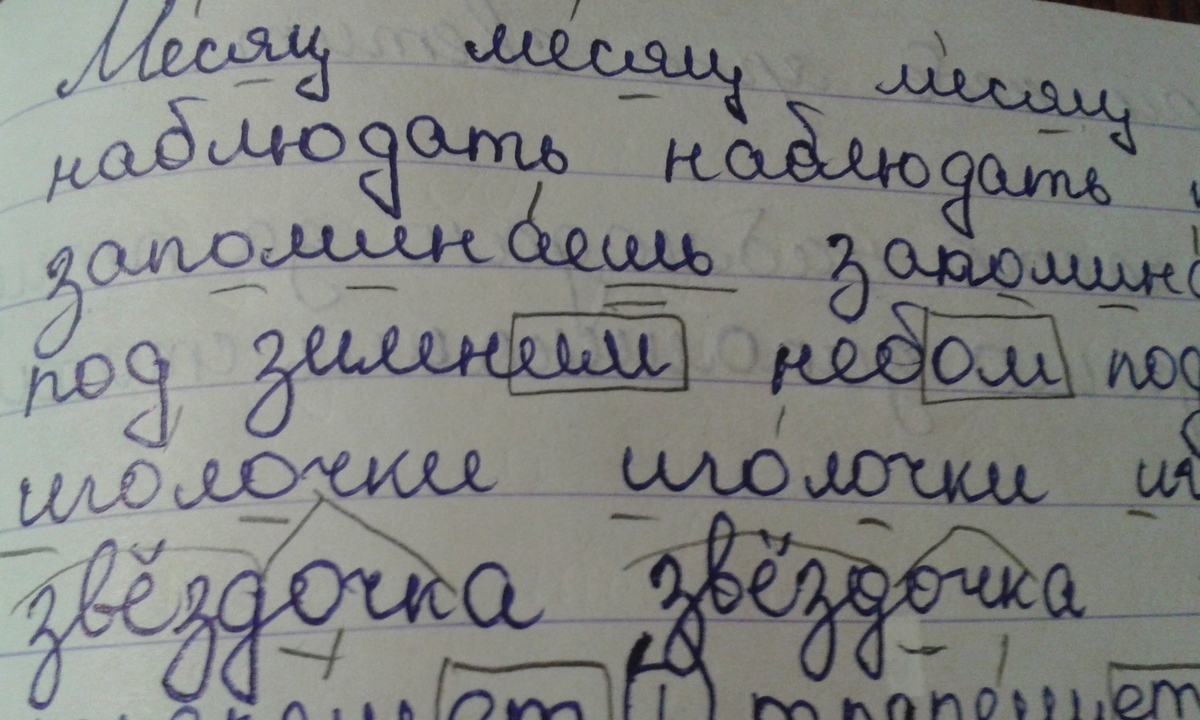 Месяц месяц месяц
наблюдать наблюдать
запоминаешь запомина
под зименем небом под
иголочки иголочки
звёздочка звёздочка